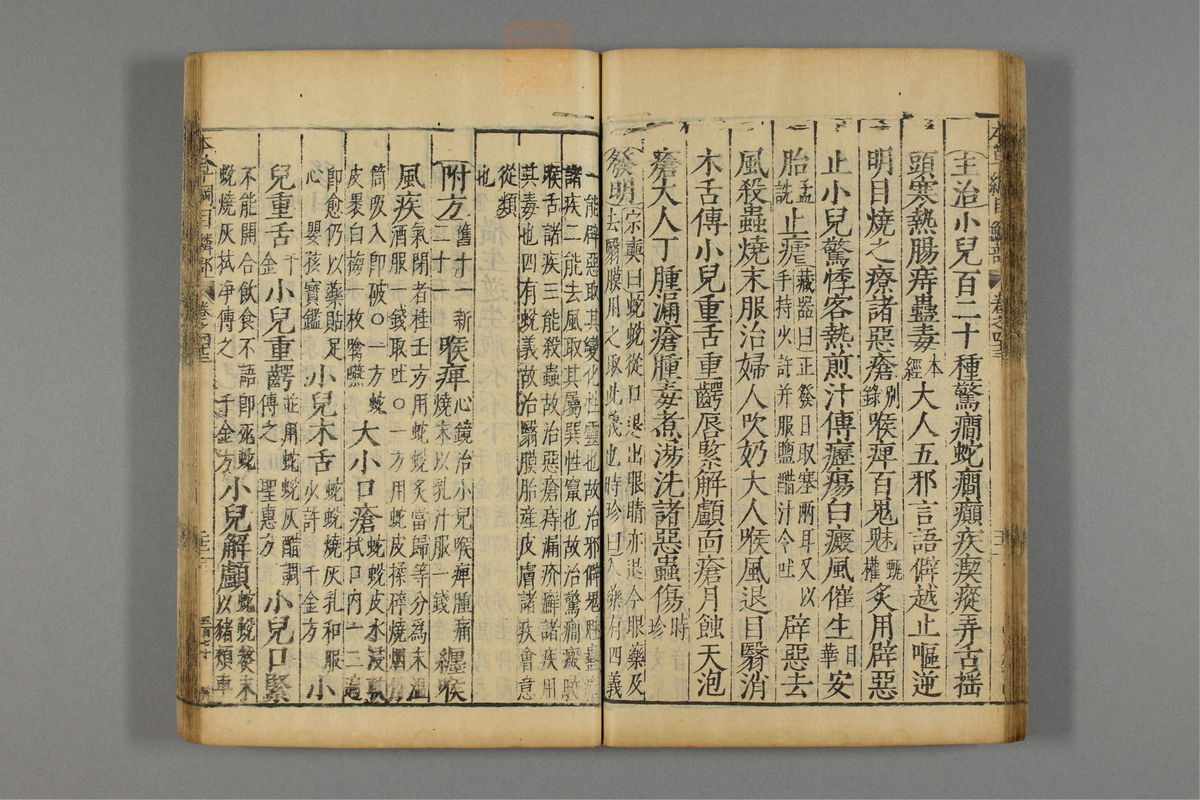 主治小兒百二十種驚癎蛇癎癲疾瘈瘲弄舌揺
頭寒熱腸痔蠱毒本經大人五邪言語僻越止嘔逆
明目燒之療諸惡瘡别錄喉痺百鬼魅甄權炙用辟惡
止小兒驚悸客熱煎汁傅癧瘍白癜風催生日華安
胎孟詵止瘧藏器曰正發日取塞兩耳又以手持少許并服鹽醋汁令吐辟惡去
風殺蟲燒末服治婦人吹奶大人喉風退目翳消
木舌傅小兒重舌重齶唇緊解顱面瘡月蝕天泡
瘡大人丁腫漏瘡腫毒煮湯洗諸惡蟲傷時珍
發明宗奭曰蛇蛻從口退出眼睛亦退今眼藥及去翳膜用之取此義也時珍曰入藥有四義
一能辟惡取其變化性靈也故治邪僻鬼魅蠱瘧
諸疾二能去風取其屬巽性竄也故治驚癎癜駮
喉舌諸疾三能殺蟲故治惡瘡痔漏疥癬諸疾用
其毒也四有蛻義故治翳膜胎産皮膚諸疾會意
從類
也
附方舊十一新二十喉痺心鏡治小兒喉痺腫痛燒末以乳汁服一錢纏喉
風疾氣閉者桂王方用蛇蛻炙當歸等分爲末溫酒服一錢取吐○一方用蛇皮揉碎燒烟
筒吸入即破○一方蛇皮裹白梅一枚噙嚥大小口瘡蛇蛻皮水浸軟拭口内一二遍
即愈仍以藥貼足心嬰孩寶鑑小兒木舌蛇蛻燒灰乳和服少許千金方小
兒重舌千金小兒重齶並用蛇蛻灰醋調傅之聖惠方小兒口緊
不能開合飲食不語即死蛇蛻燒灰拭淨傅之千金方小兒解顱蛇蛻熬末以豬頰車
本草綱目鱗部
卷之四三